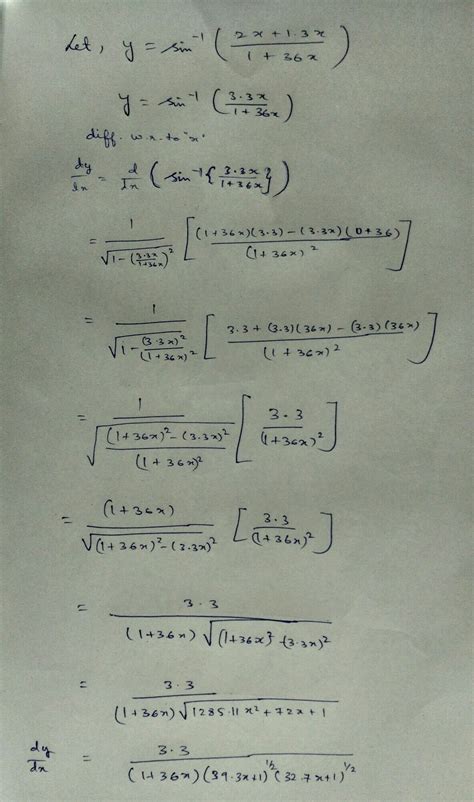 Let, y = sin⁻¹ ( (2x + 1.3x) / (1 + 36x) )
y = sin⁻¹ ( 3.3x / (1+36x) )
diff. w.r. to 'x'
dy/dx = d/dx ( sin⁻¹ { 3.3x / (1+36x) } )
= 1 / √(1 - (3.3x / (1+36x))²) [ ((1+36x)(3.3) - (3.3x)(0+36)) / (1+36x)² ]
= 1 / √(1 - (3.3x)² / (1+36x)²) [ (3.3 + (3.3)(36x) - (3.3)(36x)) / (1+36x)² ]
= 1 / √(((1+36x)² - (3.3x)²) / (1+36x)²) [ 3.3 / (1+36x)² ]
= (1+36x) / √((1+36x)² - (3.3x)²) [ 3.3 / (1+36x)² ]
= 3.3 / ((1+36x) √((1+36x)² - (3.3x)²))
= 3.3 / ((1+36x) √(1285.11x² + 72x + 1))
dy/dx = 3.3 / ((1+36x) (39.3x+1)^1/2 (32.7x+1)^1/2)